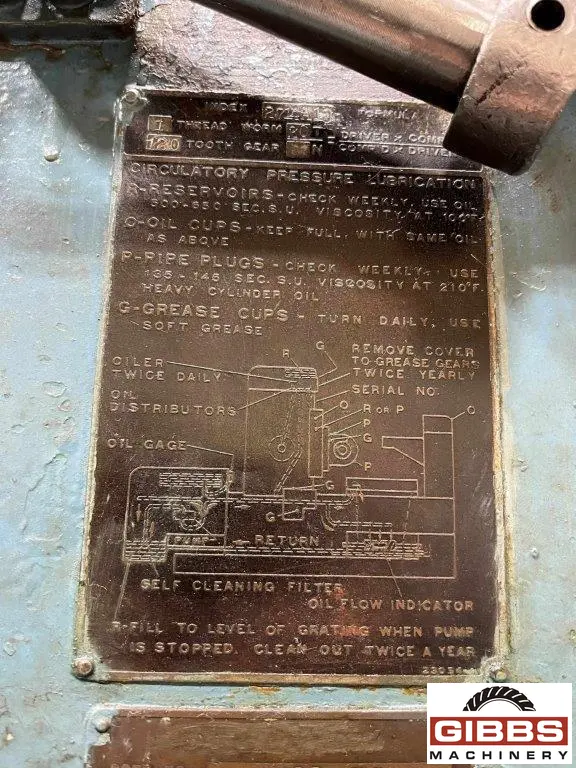 INDEX FORMULA
1 THREAD WORM
DRIVER X COMP
120 TOOTH GEAR N COMP'D X DRIVEN
CIRCULATORY PRESSURE LUBRICATION
R-RESERVOIRS-CHECK WEEKLY, USE OIL
500-650 SEC. S.U. VISCOSITY AT 100°F.
O-OIL CUPS-KEEP FULL, WITH SAME OIL
AS ABOVE
P-PIPE PLUGS-CHECK WEEKLY. USE
135-145 SEC. S.U. VISCOSITY AT 210°F.
HEAVY CYLINDER OIL
G-GREASE CUPS-TURN DAILY, USE
SOFT GREASE
G
R
REMOVE COVER
TO GREASE GEARS
TWICE YEARLY
OILER
TWICE DAILY
SERIAL NO.
OIL
DISTRIBUTORS
O
R OR P
O
P
G
OIL GAGE
P
G
G
PUMP
RETURN
SELF CLEANING FILTER
OIL FLOW INDICATOR
R-FILL TO LEVEL OF GRATING WHEN PUMP
IS STOPPED. CLEAN OUT TWICE A YEAR
GIBBS
MACHINERY